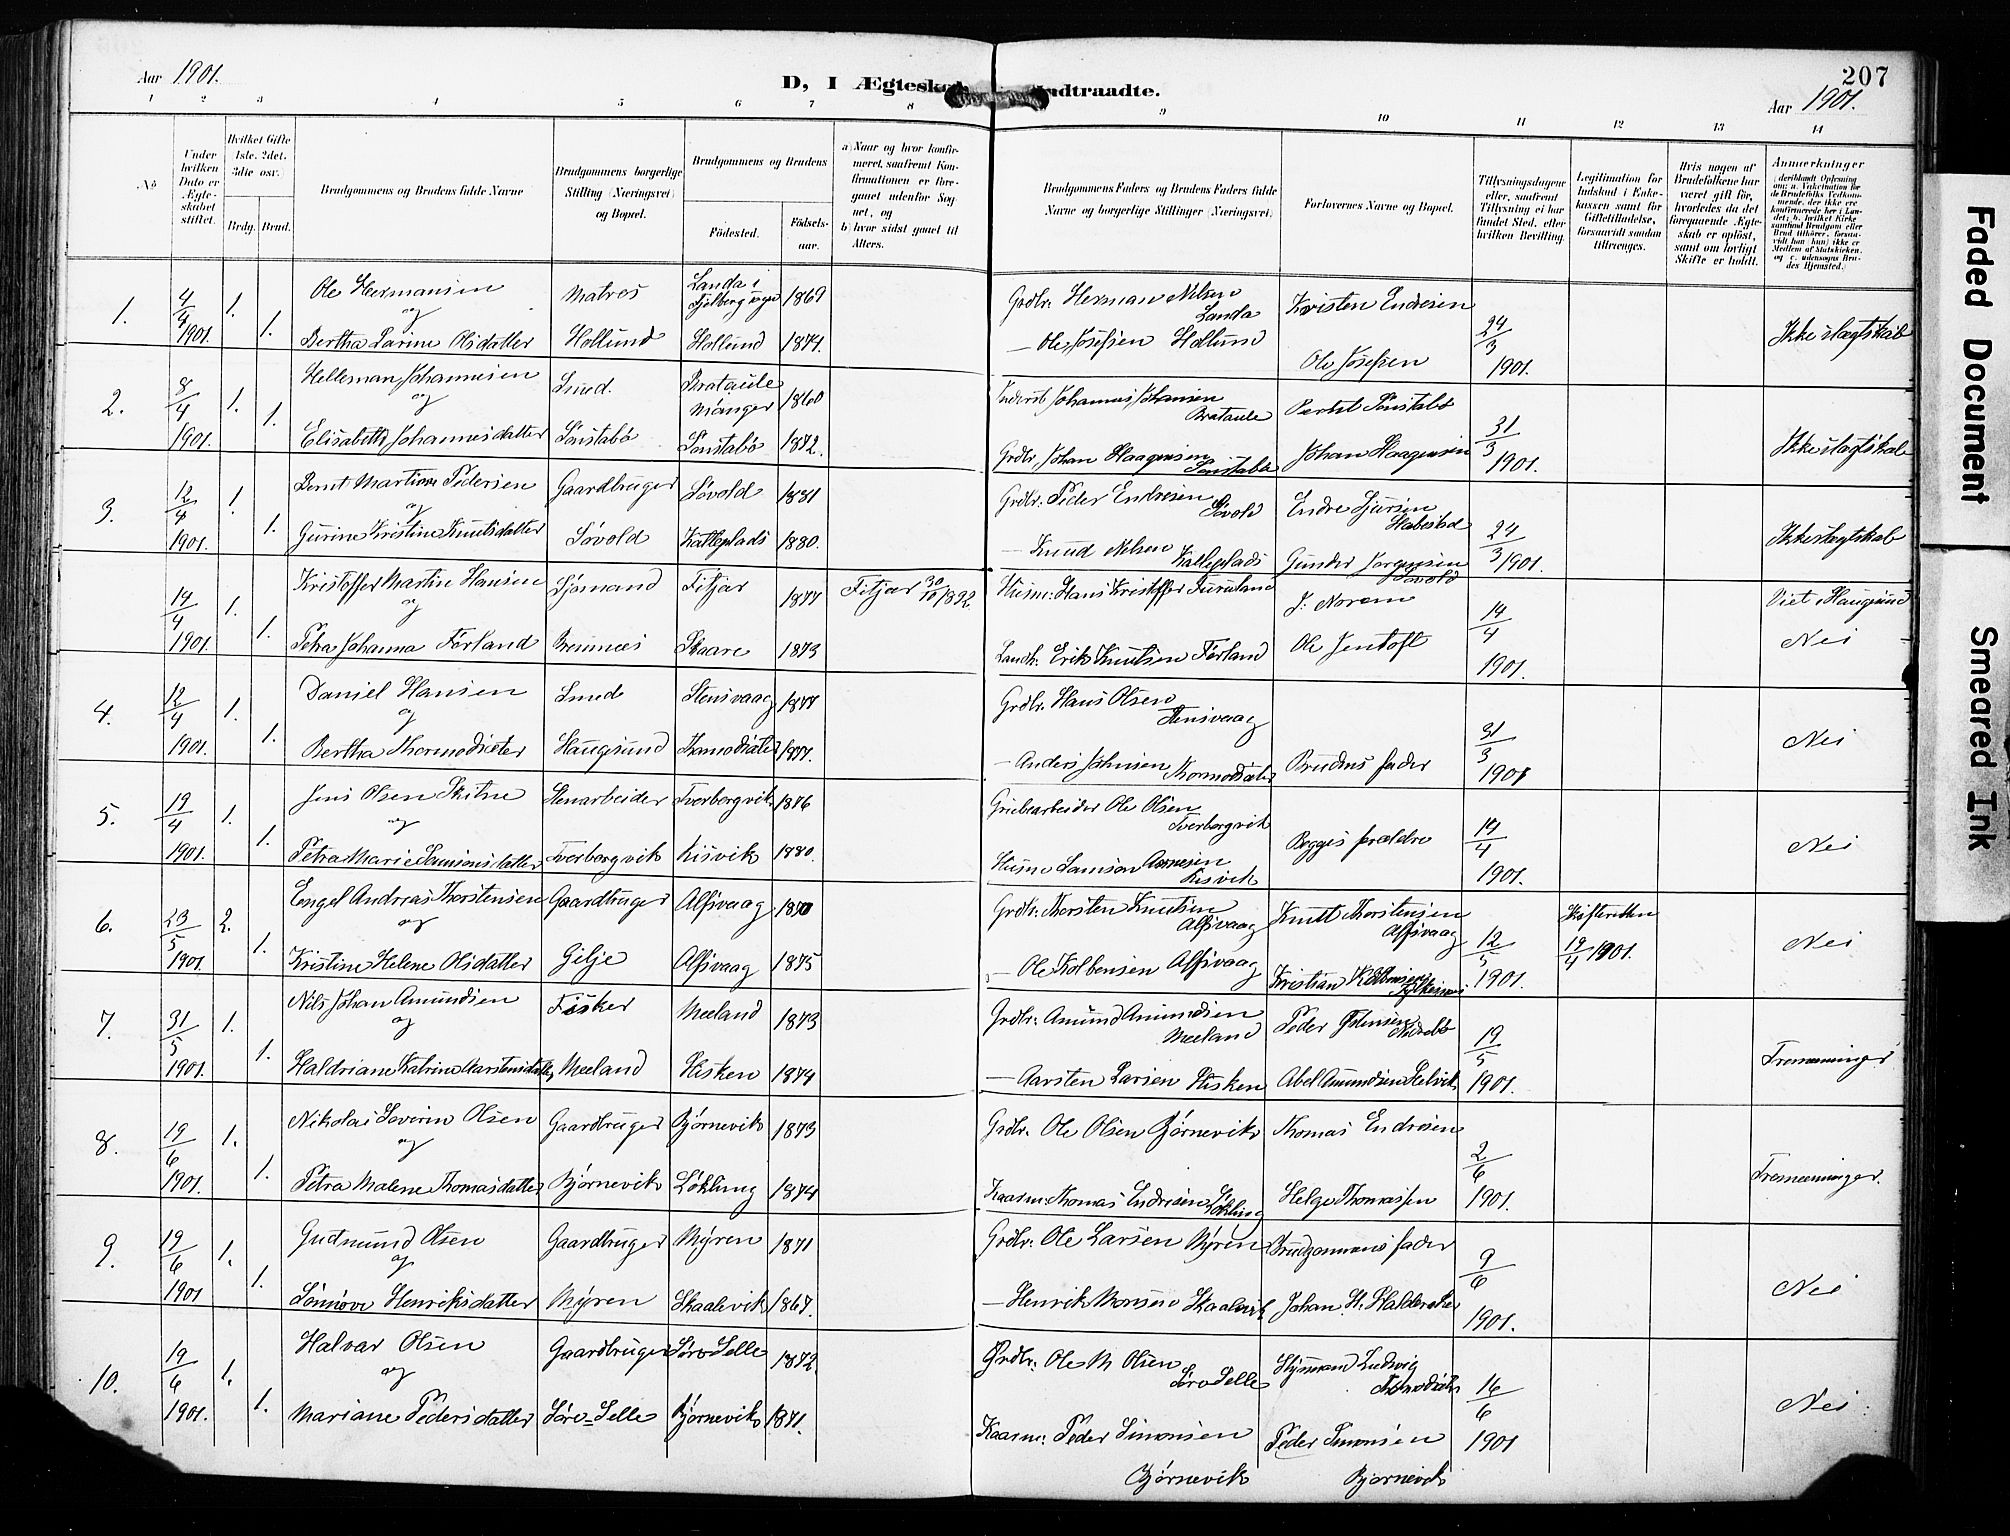 Aar 1901.
D, I Ægteskab Indtraadte.
207
Aar 1901.
1 2 3 4 5 6 7 8 9 10 11 12 13 14
No
Under hvilken Dato er Ægteskabet stiftet.
Hvilket Gifte 1ste. 2det. 3die osv.)
Brdg. Brud.
Brudgommens og Brudens fulde Navne
Brudgommens borgerlige Stilling (Næringsvei) og Bopæl.
Brudgommens og Brudens
Fødested.
Fødselsaar.
a) Naar og hvor konfirmeret, saafremt Konfirmationen er foregaaet udenfor Sognet, og
b) hvor sidst gaaet til Alters.
Brudgommens Faders og Brudens Faders fulde Navne og borgerlige Stillinger (Næringsvei)
Forlovernes Navne og Bopæl.
Tillysningsdagene eller, saafremt Tillysning ei har fundet Sted, efter hvilken Bevilling.
Legitimation for Indskud i Enkekassen samt for Giftetilladelse, forsaavidt saadan tiltrænges.
Hvis nogen af Brudefolkene har været gift før, hvorledes da det foregaaende Ægteskab er opløst, samt om lovligt Skifte er holdt.
Anmerkninger
(deriblandt Oplysning om: a. Vakcination for de Brudefolks Vedkommende, der ikke ere konfirmerede her i Landet; b. hvilket Kirkesamfund Brudgom eller Brud tilhører, forsaavidt han (hun) ikke er Medlem af Statskirken, og c. udensogns Brudes Hjemsted.)
1. 4/4 1901. 1. 1. Ole Hermansen og Bertha Larine Olsdatter Matros Hollund Landa i Fjelberg sogn Hollund 1869 1874. Grdbr. Herman Nilsen Landa — Ole Josefsen Hollund Kristen Endresen Ole Josefsen 24/3 1901. Ikke slægtskab
2. 8/4 1901. 1. 1. Helleman Johannesen og Elisabeth Johannesdatter Smed. Sønstabø Brataule Manger Sønstabø 1860 1872. Johannes Johansen Brataule Grdbr. Johan Haagensen Sønstabø Bertel Sønstabø Johan Haagensen 31/3 1901. Ikke slægtskab
3. 12/4 1901. 1. 1. Bernt Martinus Pedersen og Gurine Kristine Knutsdatter Gaardbruger Løvold Løvold Katleplads 1881 1880. Grdbr. Peder Endresen Løvold — Knud Nilsen Katleplads Endre Sjursen Habestad Gunder Jørgensen Løvold 24/3 1901. Ikke slægtskab
14/4 1901. 1. 1. Kristoffer Martin Hansen og Petra Johanna Førland Sjømand Bremnes Fitjar Skaare 1877 1873 Fitjar 30/10 1892 Husm: Hans Kristoffer Furuland Landh: Erik Knutsen Førland J. Norem Ole Jentoft 14/4 1901. Viet i Haugesund Nei
4. 12/4 1901. 1. 1. Daniel Hansen og Bertha Thormodsæter Smed Haugesund Stensvaag Thormodsæter 1877 1877. Grdbr. Hans Olsen Stensvaag — Anders Johnsen Thormodsæter Brudens fader 31/3 1901 Nei
5. 19/4 1901. 1. 1. Jens Olsen Skitne og Petra Marie Samsonsdatter Stenarbeider Tverborgvik Tverborgvik Risvik 1876 1880. Grubearbeider Ole Olsen Tverborgvik Husm Samson Aamesen Risvik Begges forældre 14/4 1901. Nei
6. 23/5 1901. 2. 1. Engel Andreas Thorstensen og Kristine Helene Olsdatter Gaardbruger Gilje Alfsvaag Alfsvaag 1870 1875 Grdbr: Thorsten Knutsen Alfsvaag — Ole Kolbensen Alfsvaag Knut Thorstensen Alfsvaag Kristian Kolbensen 12/5 1901. Skifteretten 19/4 1901. Nei
7. 31/5 1901. 1. 1. Nils Johan Amundsen og Haldriane Katrine Aarstensdatter Fisker Meeland Meeland Hisken 1873 1874 Grdbr: Amund Amundsen Meeland — Aarsten Larsen Hisken Peder Abel Amundsen Helvik 19/5 1901. Tremenninger
8. 19/6 1901. 1. 1. Nikolai Severin Olsen og Petra Malene Thomasdatter Gaardbruger Bjørnevik Bjørnevik Løkling 1873 1874 Grdbr. Ole Olsen Bjørnevik Kaarm: Thomas Endresen Løkling Thomas Endresen Helge Thomassen 2/6 1901. Tremenninger.
9. 19/6 1901 1. 1. Gudmund Olsen og Sønnøve Henriksdatter Gaardbruger Myren Myren Skaalevik 1871 1867. Grdbr: Ole Larsen Myren — Henrik Monsen Skaalevik Brudgommens fader Johan H. Halderaker 9/6 1901. Nei
10. 19/6 1901. 1. 1. Halvar Olsen og Mariane Pedersdatter Gaardbruger Søre=Selle Søre Selle Bjørnevik 1872 1871. Grdbr. Ole M Olsen Søre Selle Kaarm: Peder Simonsen Bjørnevik Styrmand Ludvig Thormodsæter Peder Simonsen Bjørnevik 16/6 1901 Nei.
Faded Document
Smeared Ink